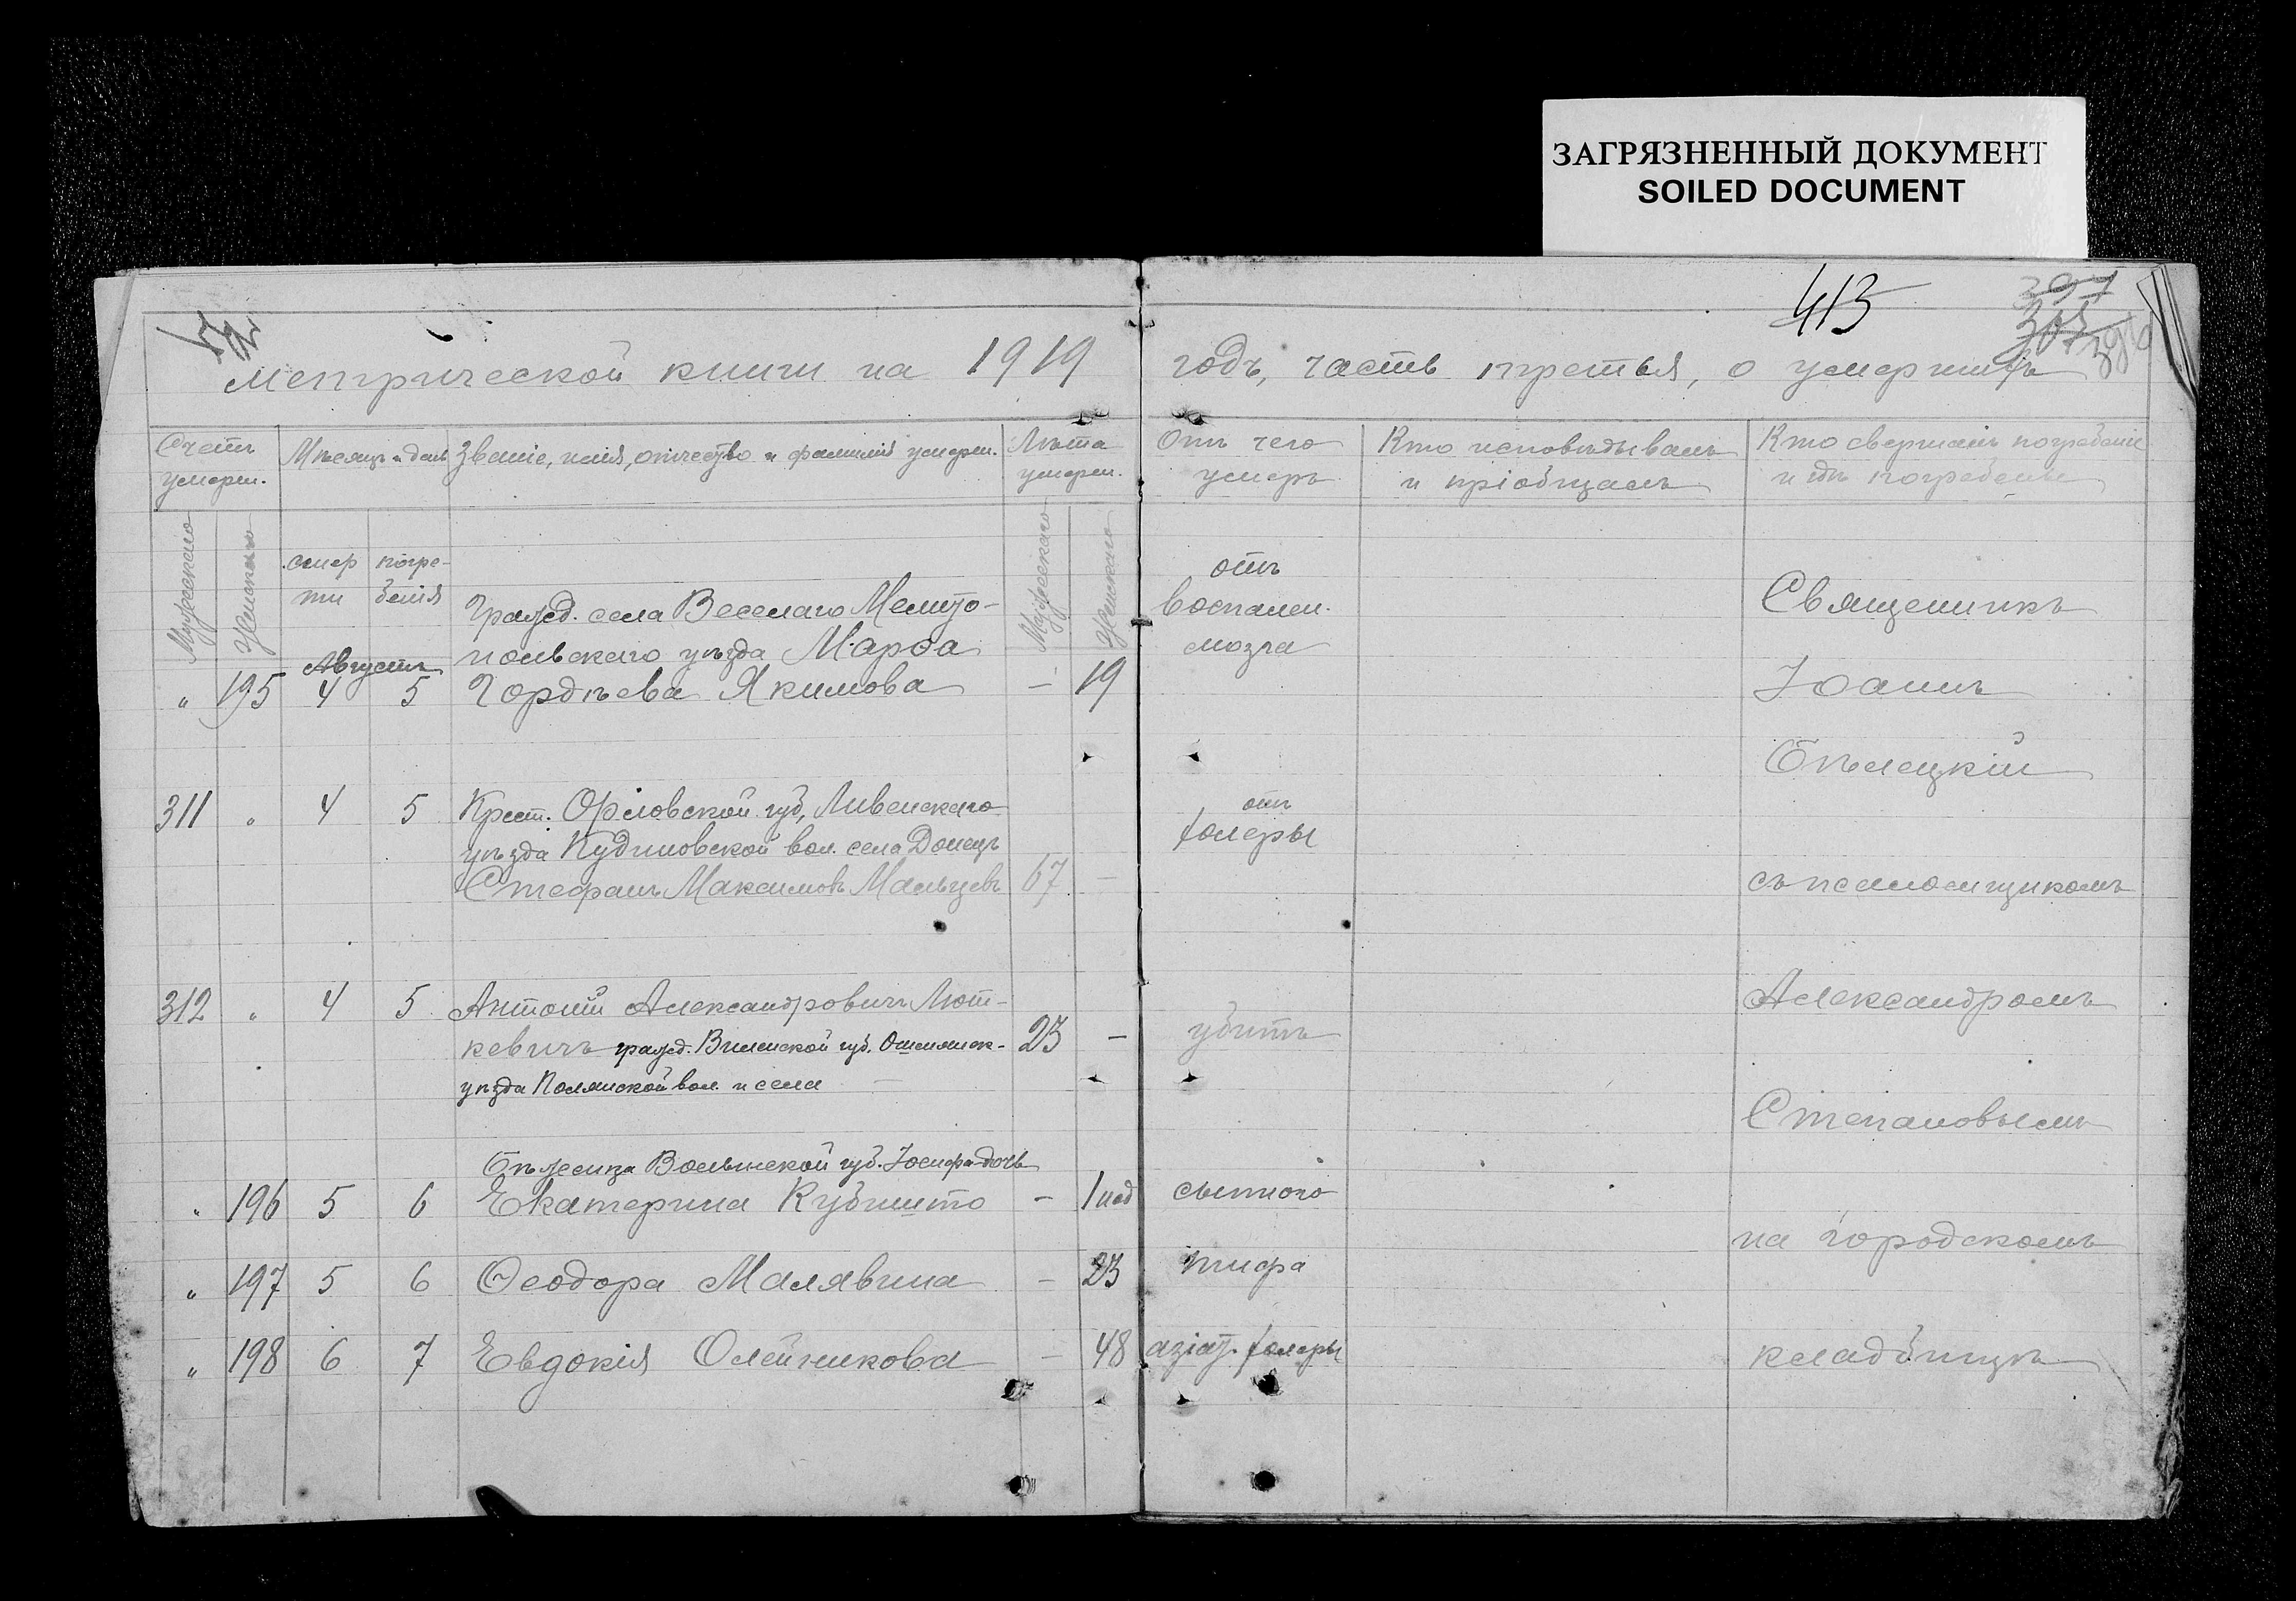 ЗАГРЯЗНЕННЫЙ ДОКУМЕНТ
SOILED DOCUMENT
413
397
Метрической книги на 1919 годъ, часть третья, о умершихъ
Счетъ умерш.
Мѣсяцъ и день
Званіе, имя, отчество и фамилія умерш.
Лѣта умерш.
Отъ чего умеръ
Кто исповѣдывалъ и пріобщалъ
Кто свершалъ погребеніе и гдѣ погребены
Мужескаго
Женскаго
смерти
погребенія
Мужескаго
Женскаго
Августъ
Гражд. села Веселаго Мелито-
польскаго уѣзда Марѳа
" 195 4 5 Гордѣева Якимова — 19
отъ
воспален.
мозга
Священникъ
Іоаннъ
Бѣлецкій
311 " 4 5 Крест. Орловской губ, Ливенскаго
уѣзда Кудиновской вол. села Донецъ
Стефанъ Максимовъ Мальцевъ 67 —
отъ
холеры
съ псаломщикомъ
312 " 4 5 Антоній Александровичъ Лют-
кевичъ гражд. Виленской губ. Ошмянск-
уѣзда Полянской вол. и села —
23 —
убитъ
Александромъ
Степановымъ
Бѣженца Волынской губ. Іосифа дочь
" 196 5 6 Екатерина — 1 сыпного
на городскомъ
" 197 5 6 Ѳеодора Малявина — 23 тифа
" 198 6 7 Евдокія Олейникова — 48 азіат. холеры
кладбищѣ